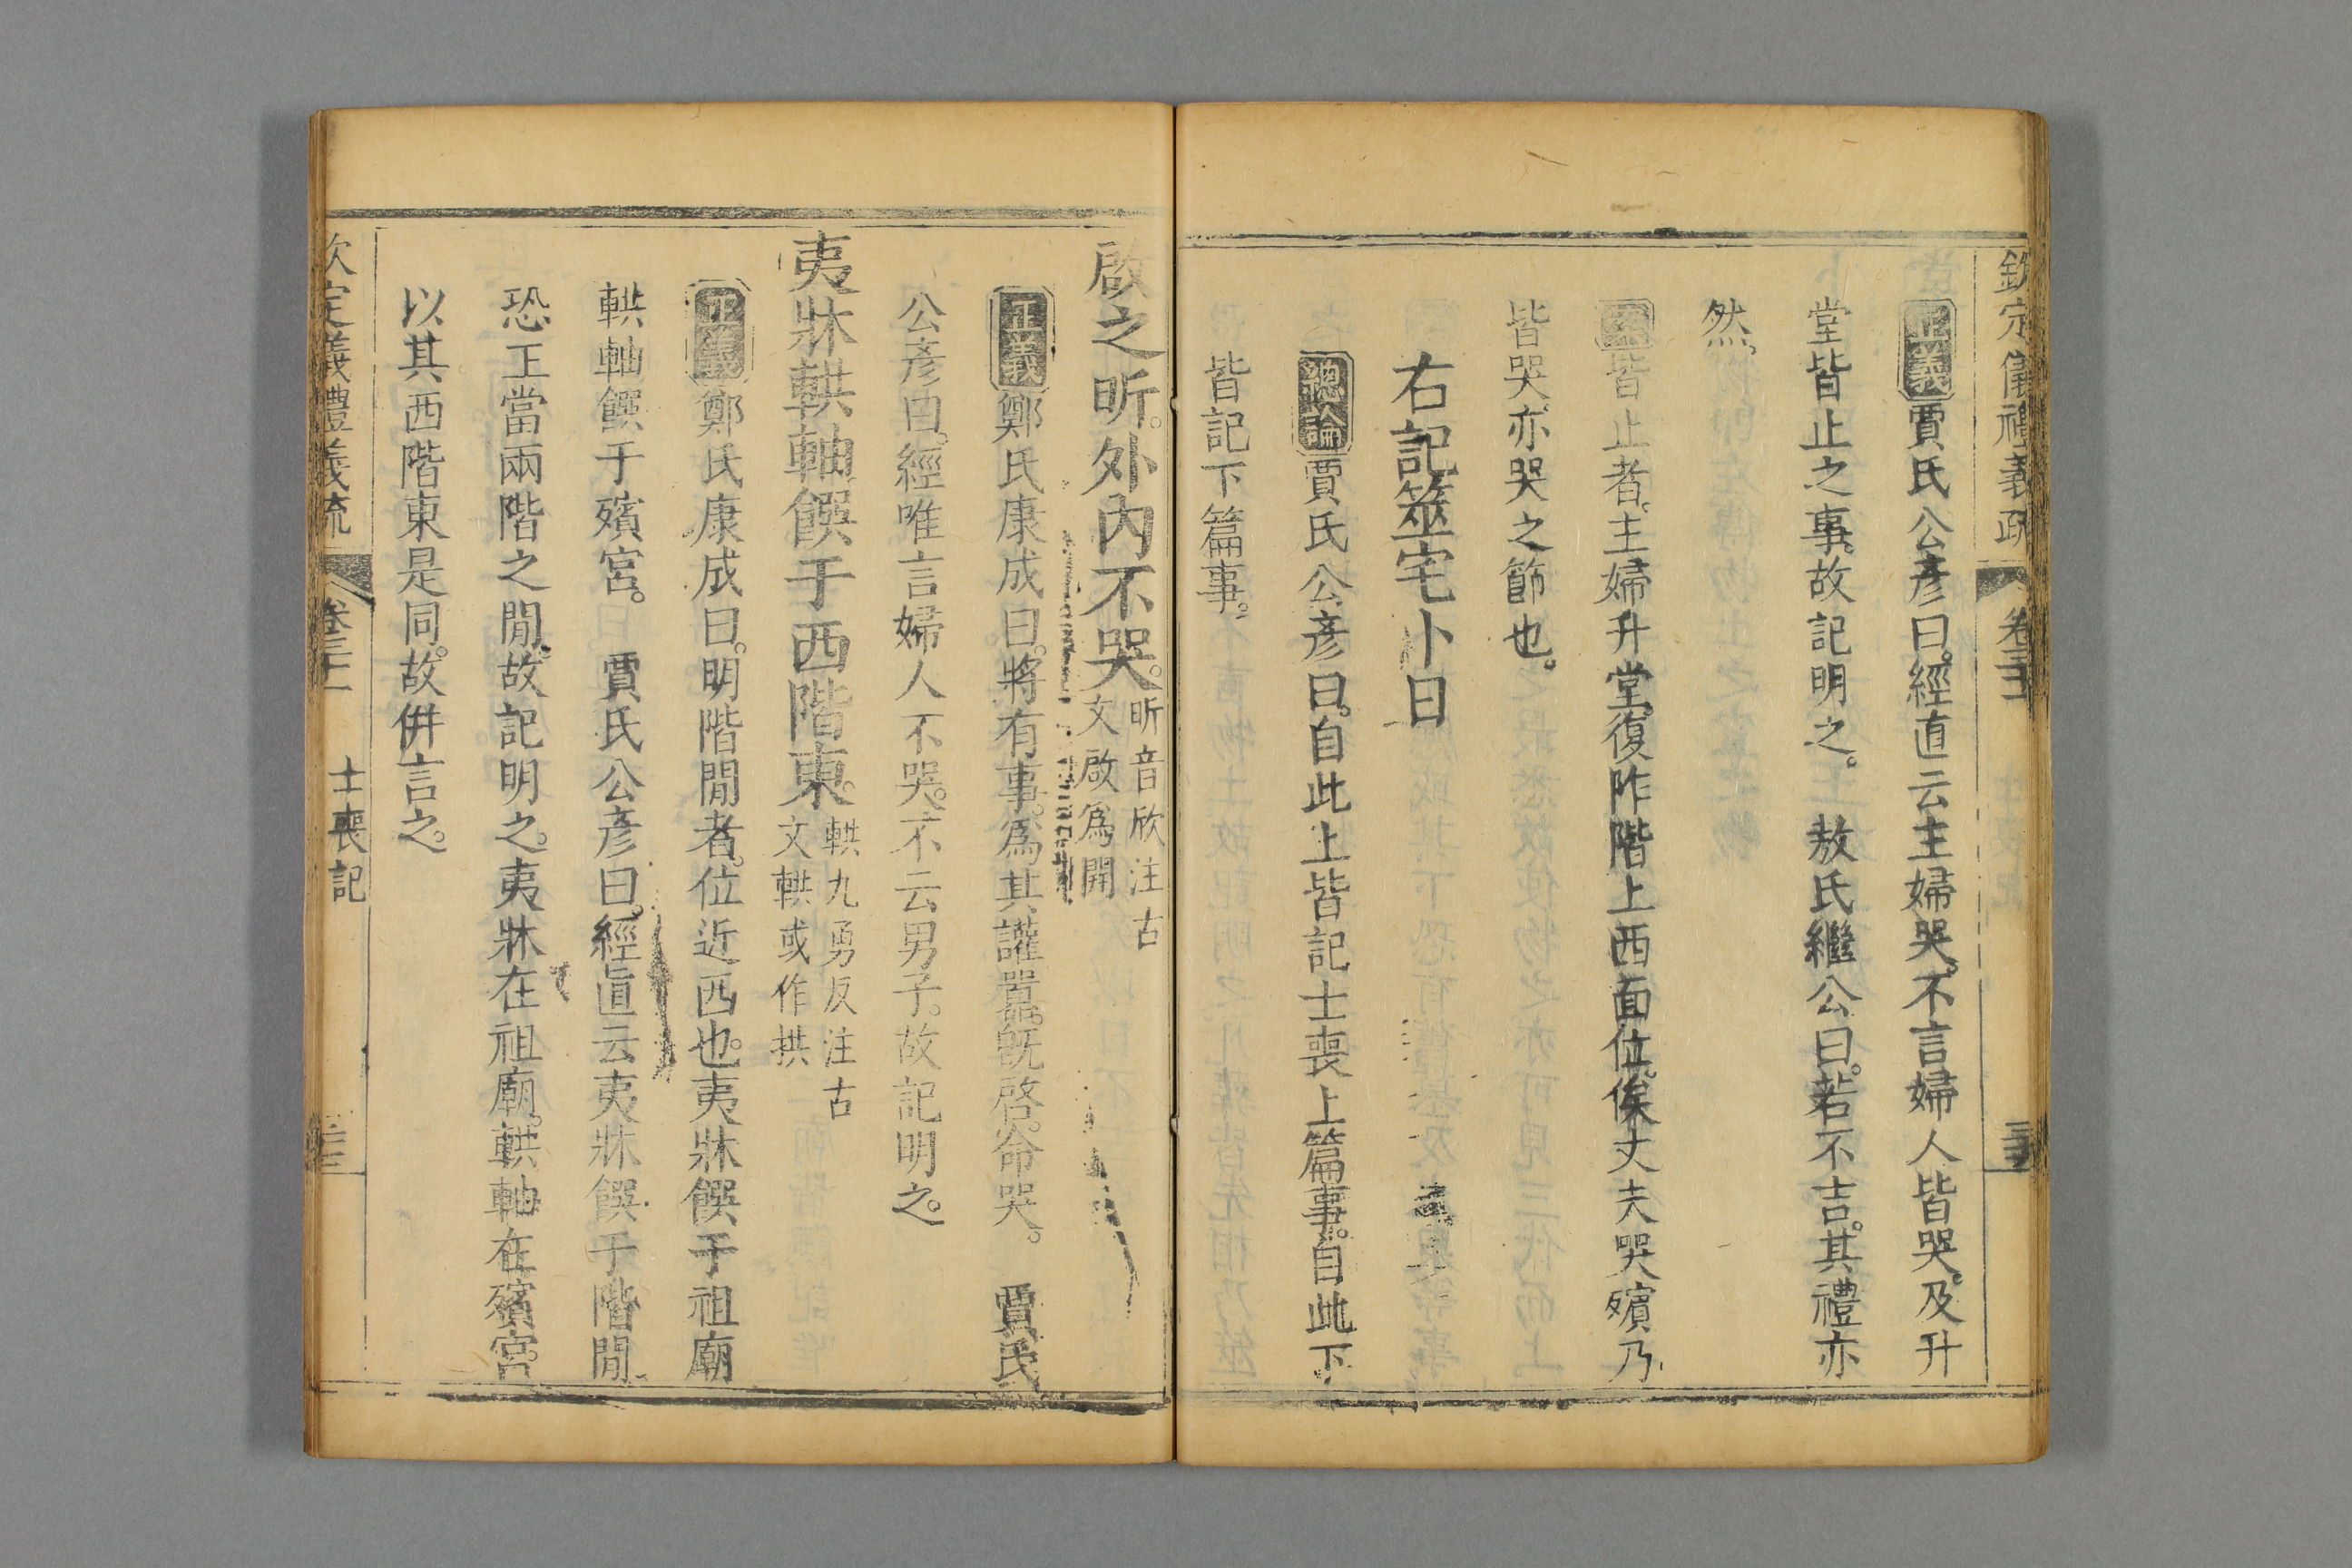 欽定儀禮義疏 卷三十一
正義賈氏公彥曰。經直云主婦哭。不言婦人皆哭。及升
堂皆止之事。故記明之。 敖氏繼公曰。若不吉。其禮亦
然。
案皆止者。主婦升堂。復阼階上西面位。俟丈夫哭殯乃
皆哭。亦哭之節也。
右記筮宅卜日
總論賈氏公彥曰。自此上皆記士喪上篇事。自此下
皆記下篇事。
啟之昕。外內不哭。昕音欣注古
文啟爲開
正義鄭氏康成曰。將有事。爲其讙囂。旣啓。命哭。 賈氏
公彥曰。經唯言婦人不哭。不云男子。故記明之。
夷牀輁軸。饌于西階東。輁九勇反注古
文輁或作拱
正義鄭氏康成曰。明階閒者。位近西也。夷牀饌于祖廟
輁軸饌于殯宮。 賈氏公彥曰。經直云夷牀饌于階閒
恐正當兩階之閒。故記明之。夷牀在祖廟。輁軸在殯宮。
以其西階東是同。故併言之。
欽定儀禮義疏 卷三十一 士喪記